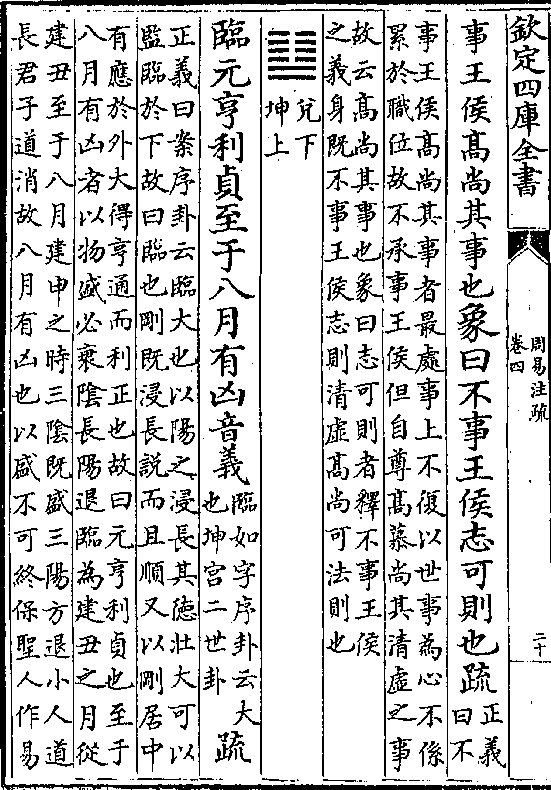 欽定四庫全書
周易注疏
卷四
二十
事王侯髙尚其事也象曰不事王侯志可則也疏
正義
曰不
事王侯髙尚其事者最處事上不復以世事為心不係
累於職位故不承事王侯但自尊髙慕尚其清虛之事
故云髙尚其事也象曰志可則者釋不事王侯
之義身既不事王侯志則清虛髙尚可法則也
兌下
坤上
臨元亨利貞至于八月有凶音義
臨如字序卦云大
也坤宫二世卦
疏
正義曰案序卦云臨大也以陽之浸長其德壯大可以
監臨於下故曰臨也剛既浸長說而且順又以剛居中
有應於外大得亨通而利正也故曰元亨利貞也至于
八月有凶者以物盛必衰陰長陽退臨為建丑之月從
建丑至于八月建申之時三陰既盛三陽方退小人道
長君子道消故八月有凶也以盛不可終保聖人作易